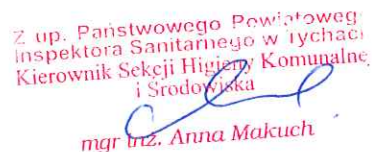 Z up. Państwowego Powiatoweg
Inspektora Sanitarnego w Tychac
Kierownik Sekcji Higieny Komunalne
i Środowiska
mgr inż. Anna Makuch